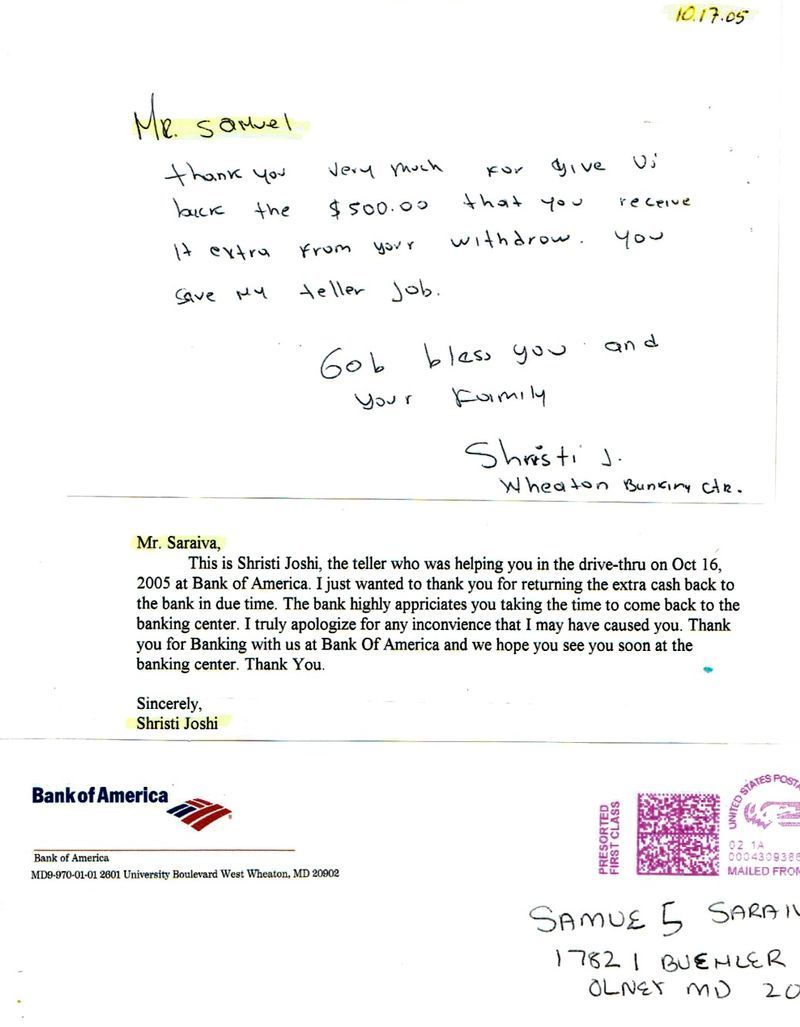 10.17.05
Mr. Samuel
thank you very much for give us
back the $500.00 that you receive
it extra from your withdrow. you
save my teller Job.
Gob bless you and
your family
Shristi J.
Wheaton Banking Ctr.
Mr. Saraiva,
This is Shristi Joshi, the teller who was helping you in the drive-thru on Oct 16,
2005 at Bank of America. I just wanted to thank you for returning the extra cash back to
the bank in due time. The bank highly appriciates you taking the time to come back to the
banking center. I truly apologize for any inconvience that I may have caused you. Thank
you for Banking with us at Bank Of America and we hope you see you soon at the
banking center. Thank You.
Sincerely,
Shristi Joshi
Bank of America
Bank of America
MD9-970-01-01 2601 University Boulevard West Wheaton, MD 20902
PRESORTED
FIRST CLASS
UNITED STATES POSTA
02 1A
MAILED FROM
SAMUE 5 SARAIV
17821 BUEHLER
OLNEY MD 20